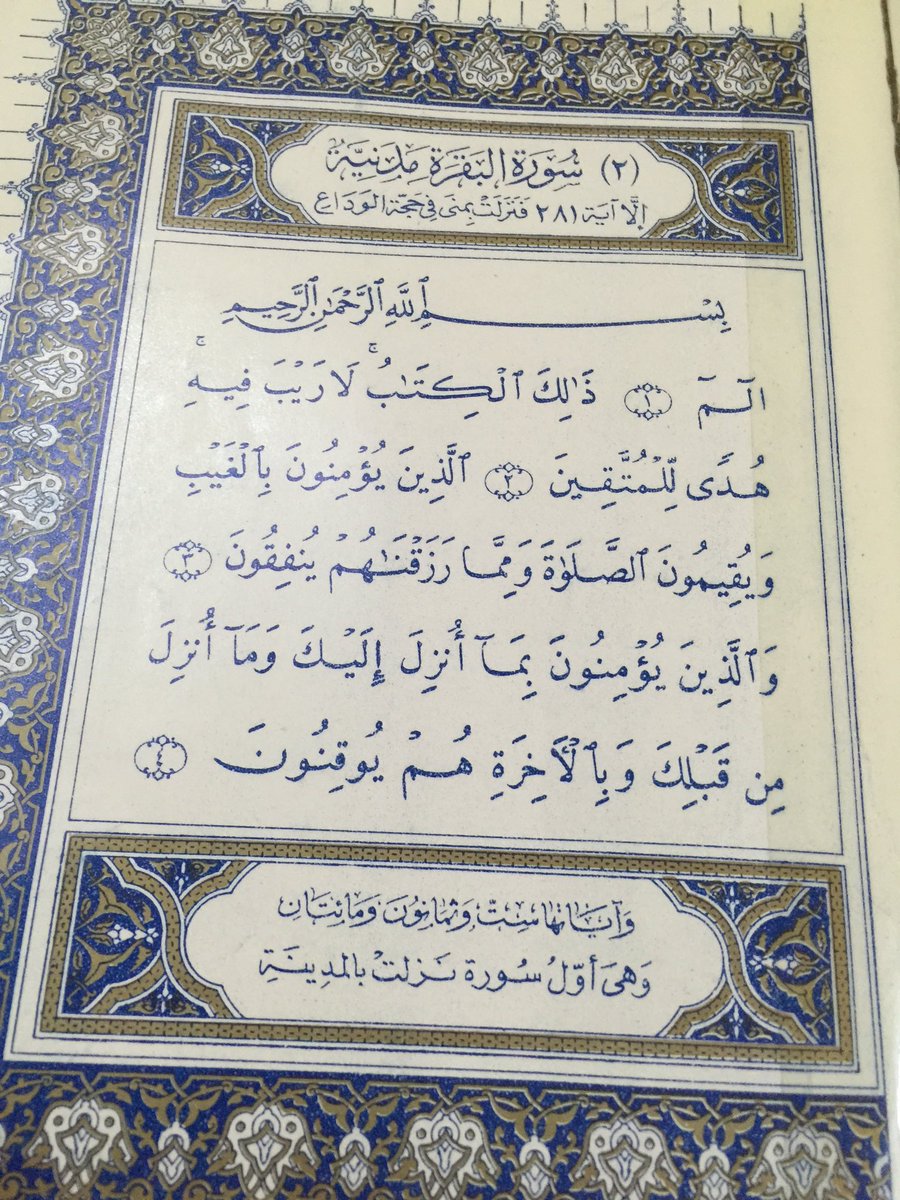 (٢) سُورَة البَقَرَة مَدَنِيَّة
إلَّا آيَة ٢٨١ فَنَزَلَتْ بِمِنَى فِي حَجَّةِ الوَدَاع
بِسْمِ ٱللَّهِ ٱلرَّحْمَٰنِ ٱلرَّحِيمِ
الٓمٓ ١ ذَٰلِكَ ٱلْكِتَٰبُ ۛ لَا رَيْبَ فِيهِ ۛ
هُدًى لِّلْمُتَّقِينَ ٢ ٱلَّذِينَ يُؤْمِنُونَ بِٱلْغَيْبِ
وَيُقِيمُونَ ٱلصَّلَوٰةَ وَمِمَّا رَزَقْنَٰهُمْ يُنفِقُونَ ٣
وَٱلَّذِينَ يُؤْمِنُونَ بِمَآ أُنزِلَ إِلَيْكَ وَمَآ أُنزِلَ
مِن قَبْلِكَ وَبِٱلْأَخِرَةِ هُمْ يُوقِنُونَ ٤
وَآيَاتُهَا سِتٌّ وَثَمَانُونَ وَمِائَتَانِ
وَهِيَ أَوَّلُ سُورَة نَزَلَتْ بِالمَدِينَةِ